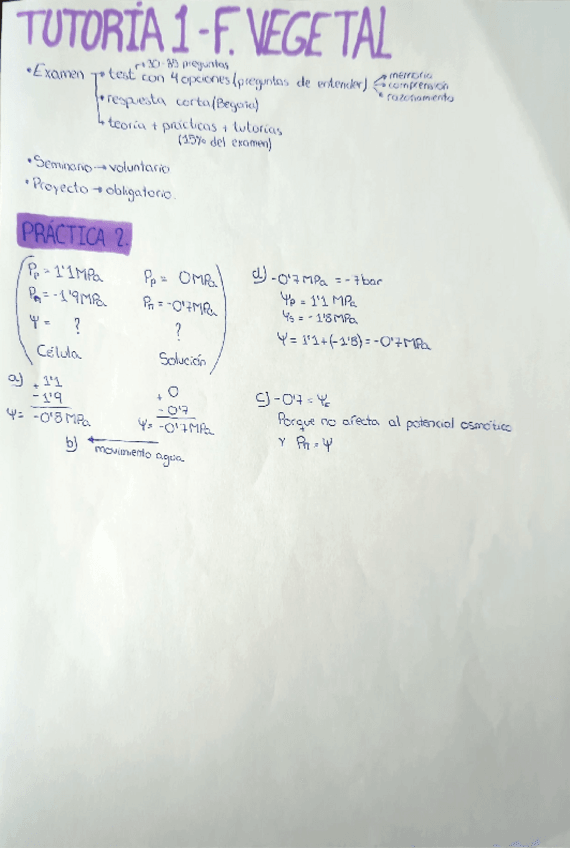 TUTORÍA 1 - F. VEGETAL
→ 30-35 preguntas
• Examen → test con 4 opciones (preguntas de entender) → memoria
→ comprensión
→ razonamiento
• respuesta corta (Begoña)
→ teoría + prácticas + tutorías
(15% del examen)
• Seminario → voluntario
• Proyecto → obligatorio.
PRÁCTICA 2.
Pp = 1'1 MPa
Pπ = -1'9 MPa
Ψ = ?
Célula
Pp = 0 MPa
Pπ = -0'7 MPa
?
Solución
a) + 1'1
- 1'9
Ψ = -0'8 MPa
+ 0
- 0'7
Ψ = -0'7 MPa
b) ←
movimiento agua
d) -0'7 MPa = -7 bar
Ψp = 1'1 MPa
Ψs = -1'8 MPa
Ψ = 1'1 + (-1'8) = -0'7 MPa
c) -0'7 = Ψc
Porque no afecta al potencial osmótico
y Pπ = Ψ